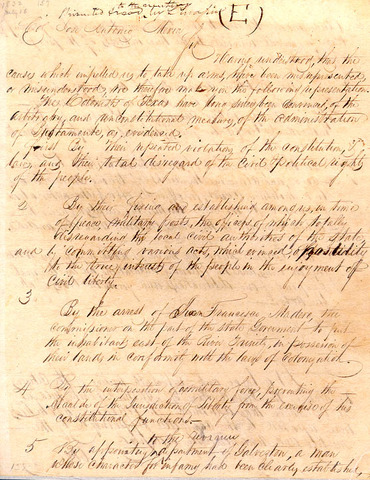 (E)
to the
Col José Antonio Mexia
Sir
Having understood, that the
causes which impelled us to take up arms, have been misrepresented,
or misunderstood, we therefore make you the following representation.
The Colonists of Texas have long since been convinced, of the
arbitrary, and unconstitutional measures, of the administration
of Bustamente, as evidenced.
First By their repeated violations of the constitution, &
laws, and their total disregard of the civil & political rights
of the people.
2 By their fixing and establishing among us, in time
of peace military posts, the officers of which totally
disregarding the local civil authorities of the State,
and by committing various acts, which evinced, opposition
to the true interest of the people in the enjoyment of
civil liberty.
3
By the arrest of Juan Francisco Madero, the
commissioner on the part of the State Government to put
the inhabitants east of the San Jacinto, in possession of
their lands in conformity to the laws of Colonization.
4 By the interposition of a military force, preventing the
Alcalde of the Jurisdiction of Liberty from the exercise of his
constitutional functions.
5 By appointing to the revenue department of Galveston, a man
whose character for infamy had been clearly established,